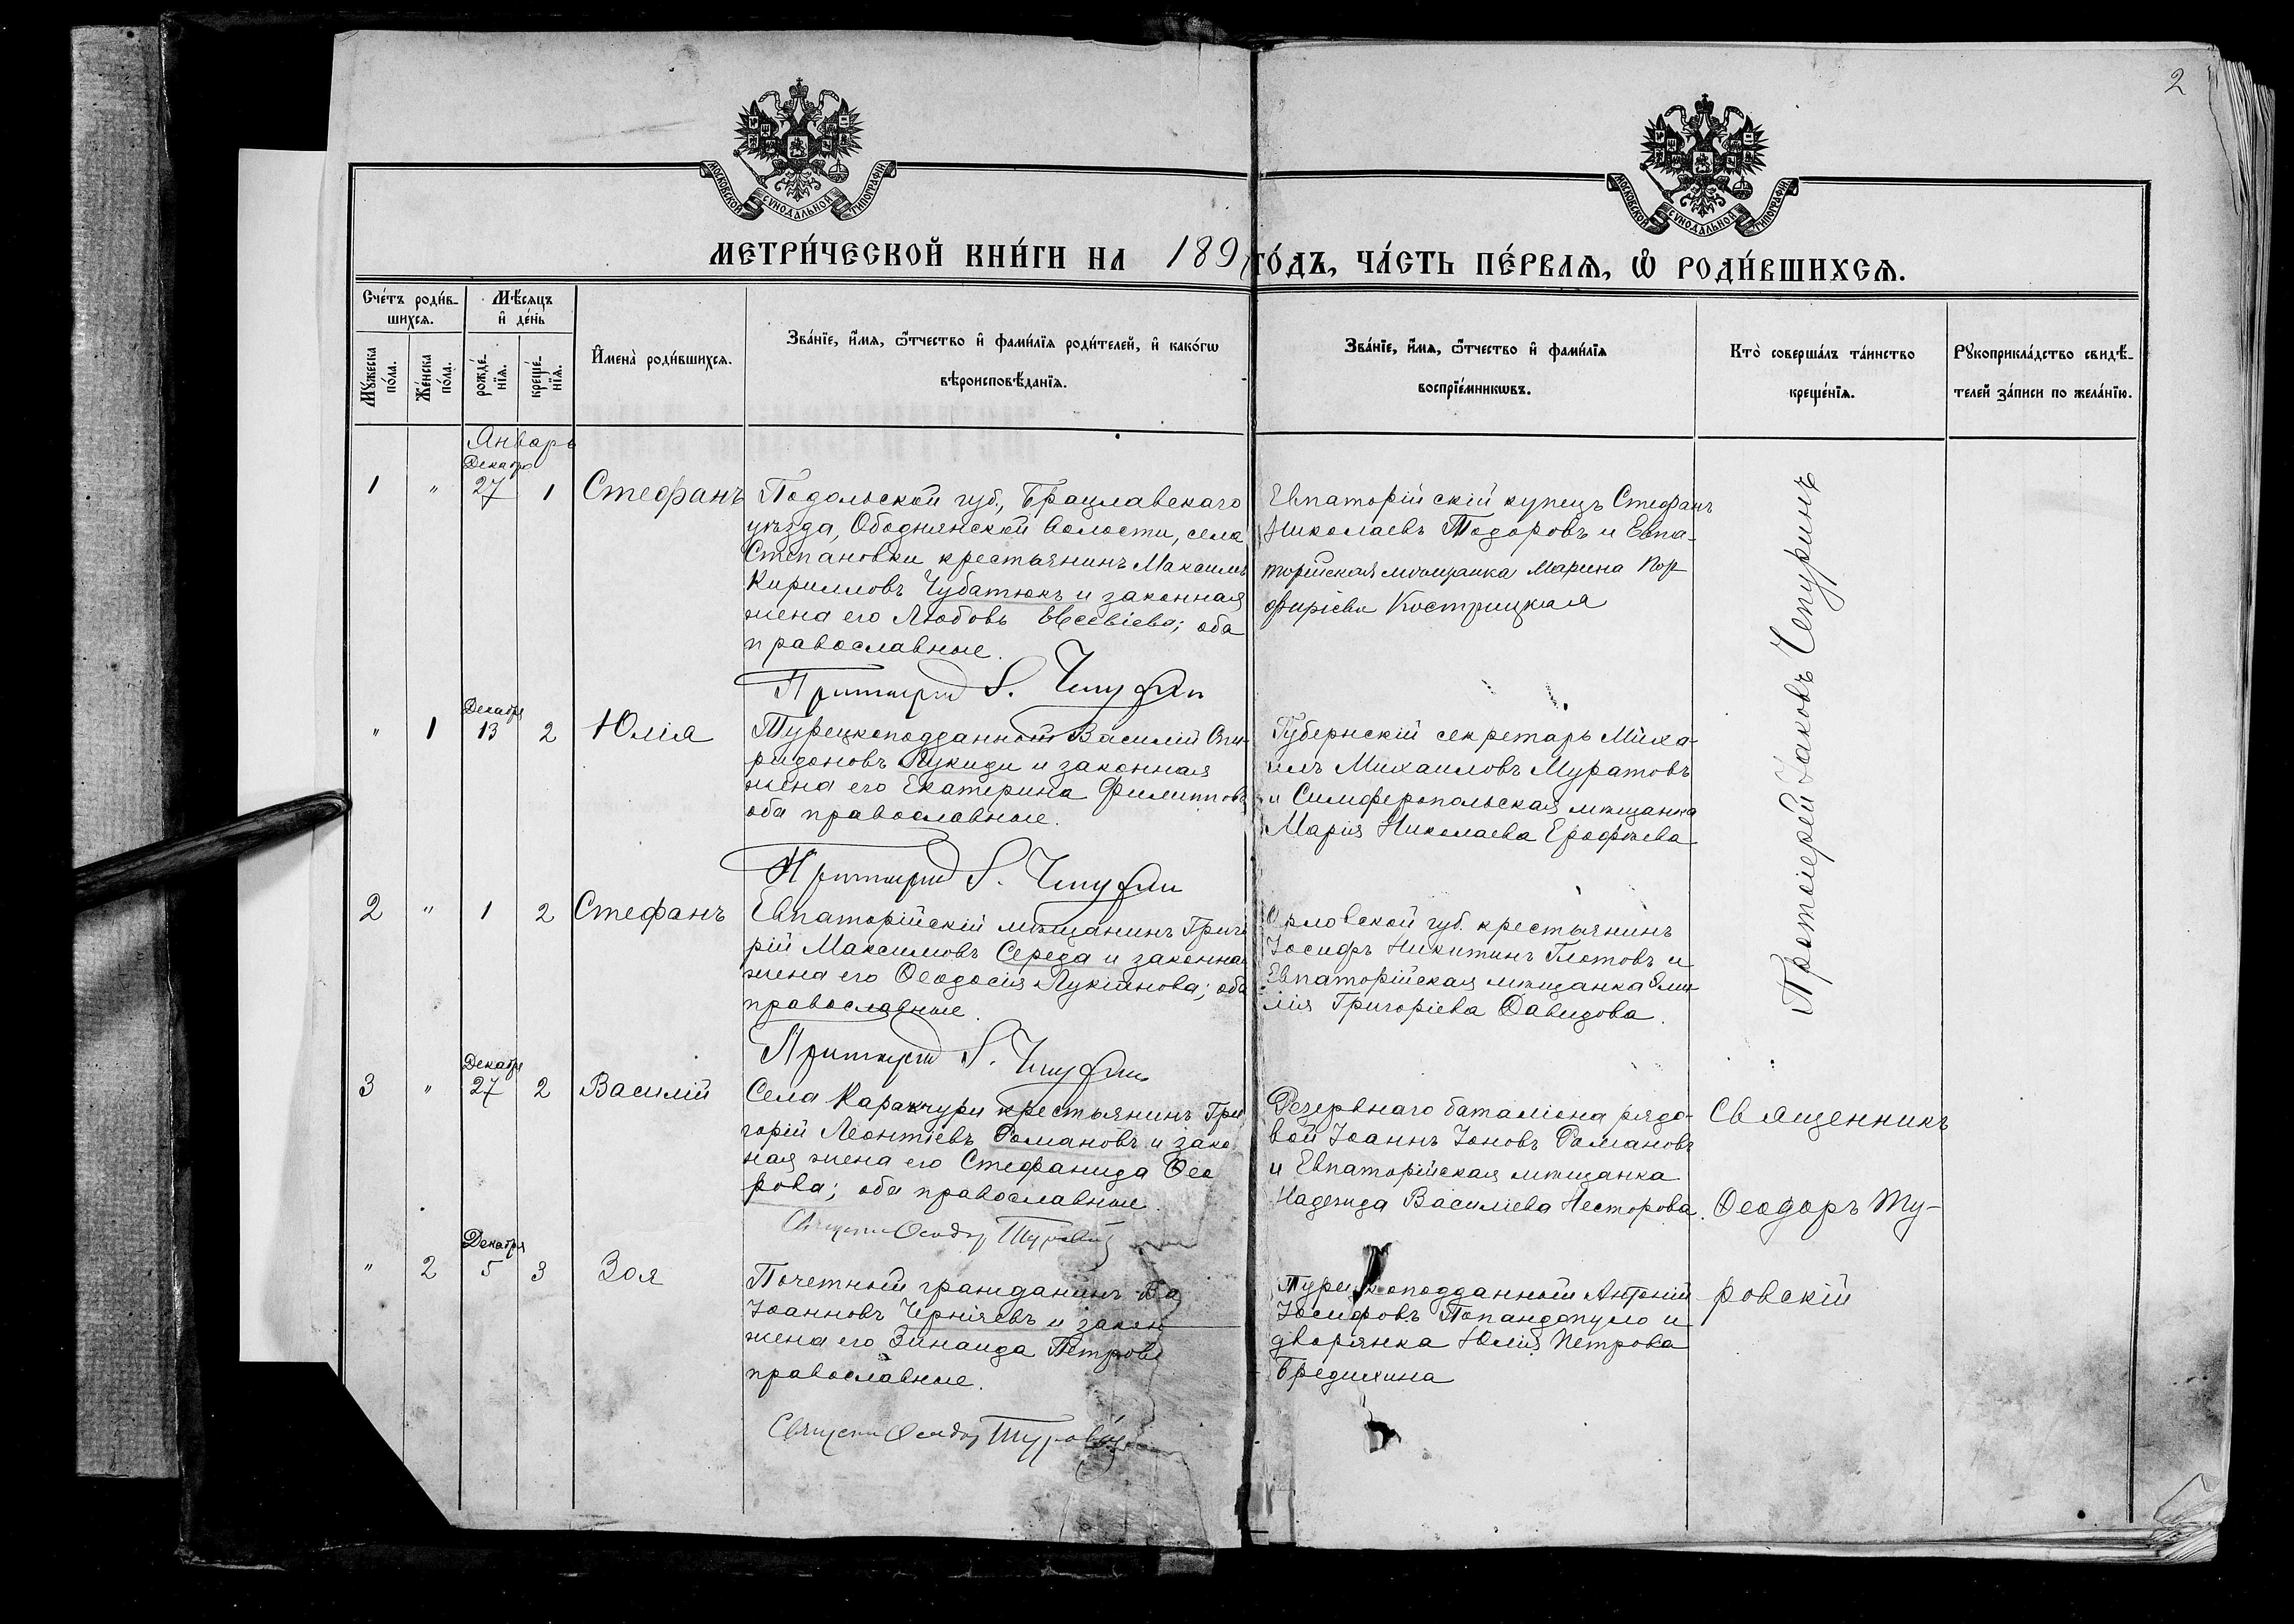 2
МОСКОВСКОЙ СѴНОДАЛЬНОЙ ТИПОГРАФІИ
МОСКОВСКОЙ СѴНОДАЛЬНОЙ ТИПОГРАФІИ
МЕТРИ́ЧЕСКОЙ КНИ́ГИ НА 189 ГО́ДЪ, ЧА́СТЬ ПЕ́РВАѦ, Ѡ҆ РОДИ́ВШИХСѦ.
Сче́тъ роди́в-
шихсѧ.
Мꙋ́жеска
по́ла.
Же́нска
по́ла.
Мѣ́сѧцъ
и҆ де́нь
рожде́-
нїѧ.
креще́-
нїѧ.
И҆мена̀ роди́вшихсѧ.
Зва́нїе, и҆́мѧ, ѻ҆́тчество и҆ фами́лїѧ роди́телей, и҆ како́гѡ
вѣроисповѣ́данїѧ.
Зва́нїе, и҆́мѧ, ѻ҆́тчество и҆ фами́лїѧ
воспрїе́мникѡвъ.
Кто̀ соверша́лъ та́инство
креще́нїѧ.
Рꙋкоприкла́дство свидѣ́-
телей за́писи по жела́нїю.
Январь
Декабр
1 " 27 1 Стефанъ
Подольской губ., Брацлавскаго
уѣзда, Ободнянской волости, села
Степановки крестьянинъ Максимъ
Кирилловъ Чубатюкъ и законная
жена его Любовь Евсевіева; оба
православные.
Протоіерей Я. Чепуринъ
Евпаторійскій купецъ Стефанъ
Николаевъ Тодоровъ и Евпа-
торійская мѣщанка Марина Пор
фиріева Кострицкая
Протоіерей Іаковъ Чепуринъ
Декабря
" 1 13 2 Юлія
Турецкоподданный Василій Спи-
ридоновъ Лукиди и законная
жена его Екатерина Филиппов
оба православные.
Протоіерей Я. Чепуринъ
Губернскій секретарь Миха-
илъ Михаиловъ Муратовъ
и Симферопольская мѣщанка
Марія Николаева Ерофѣева
2 " 1 2 Стефанъ
Евпаторійскій мѣщанинъ Григо
рій Максимовъ Середа и законная
жена его Ѳеодосія Лукіанова; оба
православные.
Протоіерей Я. Чепуринъ
Орловской губ. крестьянинъ
Іосифъ Никитинъ Глотовъ и
Евпаторійская мѣщанка Еми
лія Григоріева Давидова.
Декабря
3 " 27 2 Василій
Села крестьянинъ Гри
горій Леонтіевъ Романовъ и зако
ная жена его Стефанида Ѳео
рова; оба православные.
Священн Ѳеодор Туровскій
Резервнаго баталіона рядо-
вой Іоаннъ Іоновъ Романовъ
и Евпаторійская мѣщанка
Надежда Василіева Несторова.
Священникъ
Ѳеодоръ Ту-
ровскій
Декабря
" 2 5 3 Зоя
Почетный гражданинъ
Іоанновъ Черняевъ и закон
жена его Зинаида Петрова
православные.
Священн Ѳеодор Туровскій
Турецкоподданный Антоній
Іосифовъ Попандопуло и
дворянка Юлія Петрова
Бредихина